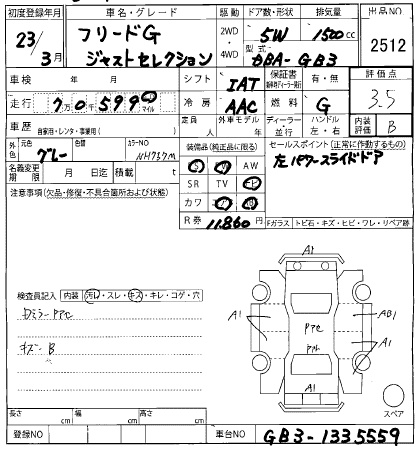 初度登録年月 車名・グレード 駆動 ドア数・形状 排気量 出品NO
23/3月 フリードG ジャストセレクション 2WD・4WD 5W 1500cc 2512
型式 DBA-GB3
車検 年 月 シフト IAT 保証書 有・無 評価点
走行 7万0千599 マイル 冷房 AAC 燃料 G 3.5
車歴 自家用・レンタ・事業用( ) 定員 人 外車モデル 年 ディーラー 並行 ハンドル 左・右 内装評価 B
外色 元色 グレー 色替 カラーNO NH737M 装備品(純正品に限る) セールスポイント(正常に作動するもの)
左パワースライドドア
名義変更期限 月 日迄 積載 t
S AW
SR TV
カワ
R券 11,860円
注意事項(欠品・修復・不具合箇所および状態)
Fガラス トビ石・キズ・ヒビ・ワレ・リペア跡
検査員記入 内装 汚れ・スレ・キズ・キレ・コゲ・穴
キズ B
A1
A1
AB1
A1
A1
スペア
長さ cm 幅 cm 高さ cm
登録NO 車台NO GB3-1335559